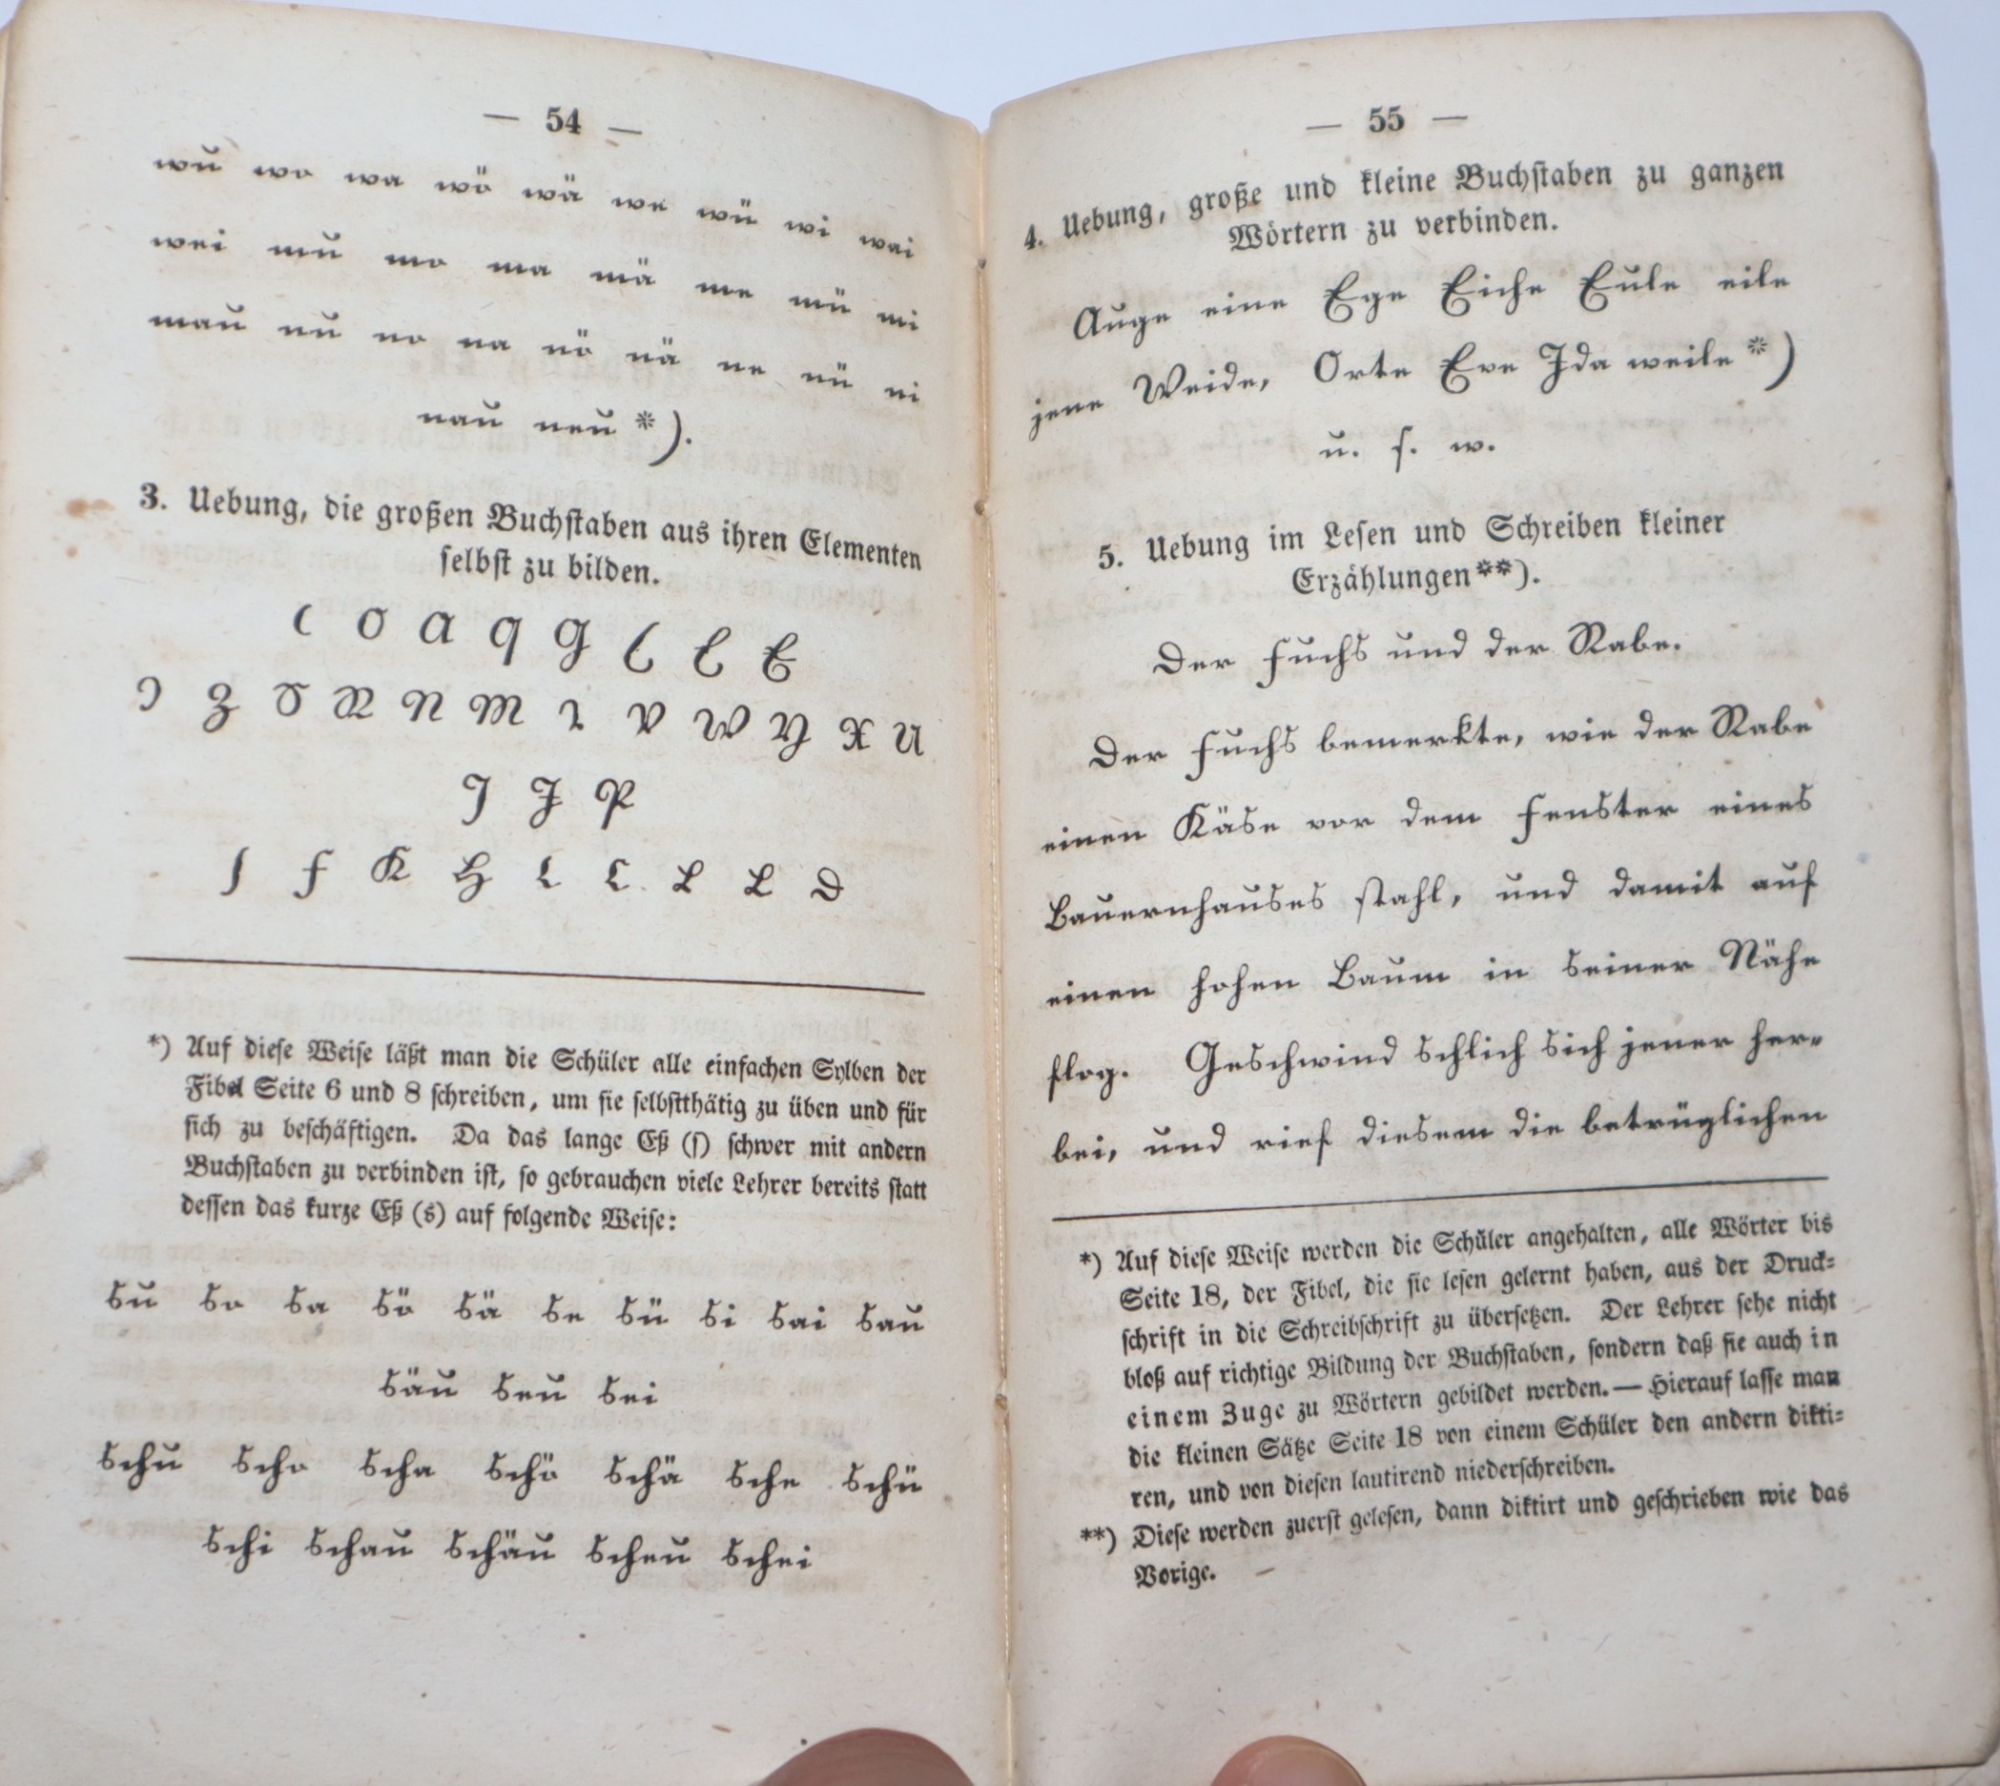 — 54 —
wu wo wa wö wä we wü wi wai
wei mu mo ma mä me mü mi
mau nu no na nö nä ne nü ni
nau neu *).
3. Uebung, die großen Buchſtaben aus ihren Elementen
ſelbſt zu bilden.
O A Q G E
Z N M V W Y X U
J I P
ſ F K H L D
*) Auf dieſe Weiſe läßt man die Schüler alle einfachen Sylben der
Fibel Seite 6 und 8 ſchreiben, um ſie ſelbſtthätig zu üben und für
ſich zu beſchäftigen. Da das lange Eß (ſ) ſchwer mit andern
Buchſtaben zu verbinden iſt, ſo gebrauchen viele Lehrer bereits ſtatt
deſſen das kurze Eß (s) auf folgende Weiſe:
su so sa sö sä se sü si sai sau
säu seu sei
schu scho scha schö schä sche schü
schi schau schäu scheu schei
— 55 —
4. Uebung, große und kleine Buchſtaben zu ganzen
Wörtern zu verbinden.
Auge eine Ege Eiche Eule eile
jene Weide, Orte Eve Ida weile *)
u. ſ. w.
5. Uebung im Leſen und Schreiben kleiner
Erzählungen **).
Der Fuchs und der Rabe.
Der Fuchs bemerkte, wie der Rabe
einen Käse vor dem Fenster eines
Bauernhauses ſtahl, und damit auf
einen hohen Baum in seiner Nähe
flog. Geschwind schlich sich jener her-
bei, und rief diesem die betrüglichen
*) Auf dieſe Weiſe werden die Schüler angehalten, alle Wörter bis
Seite 18, der Fibel, die ſie leſen gelernt haben, aus der Druck-
ſchrift in die Schreibſchrift zu überſetzen. Der Lehrer ſehe nicht
bloß auf richtige Bildung der Buchſtaben, ſondern daß ſie auch in
einem Zuge zu Wörtern gebildet werden. — Hierauf laſſe man
die kleinen Sätze Seite 18 von einem Schüler den andern dikti-
ren, und von dieſen lautirend niederſchreiben.
**) Dieſe werden zuerſt geleſen, dann diktirt und geſchrieben wie das
Vorige.